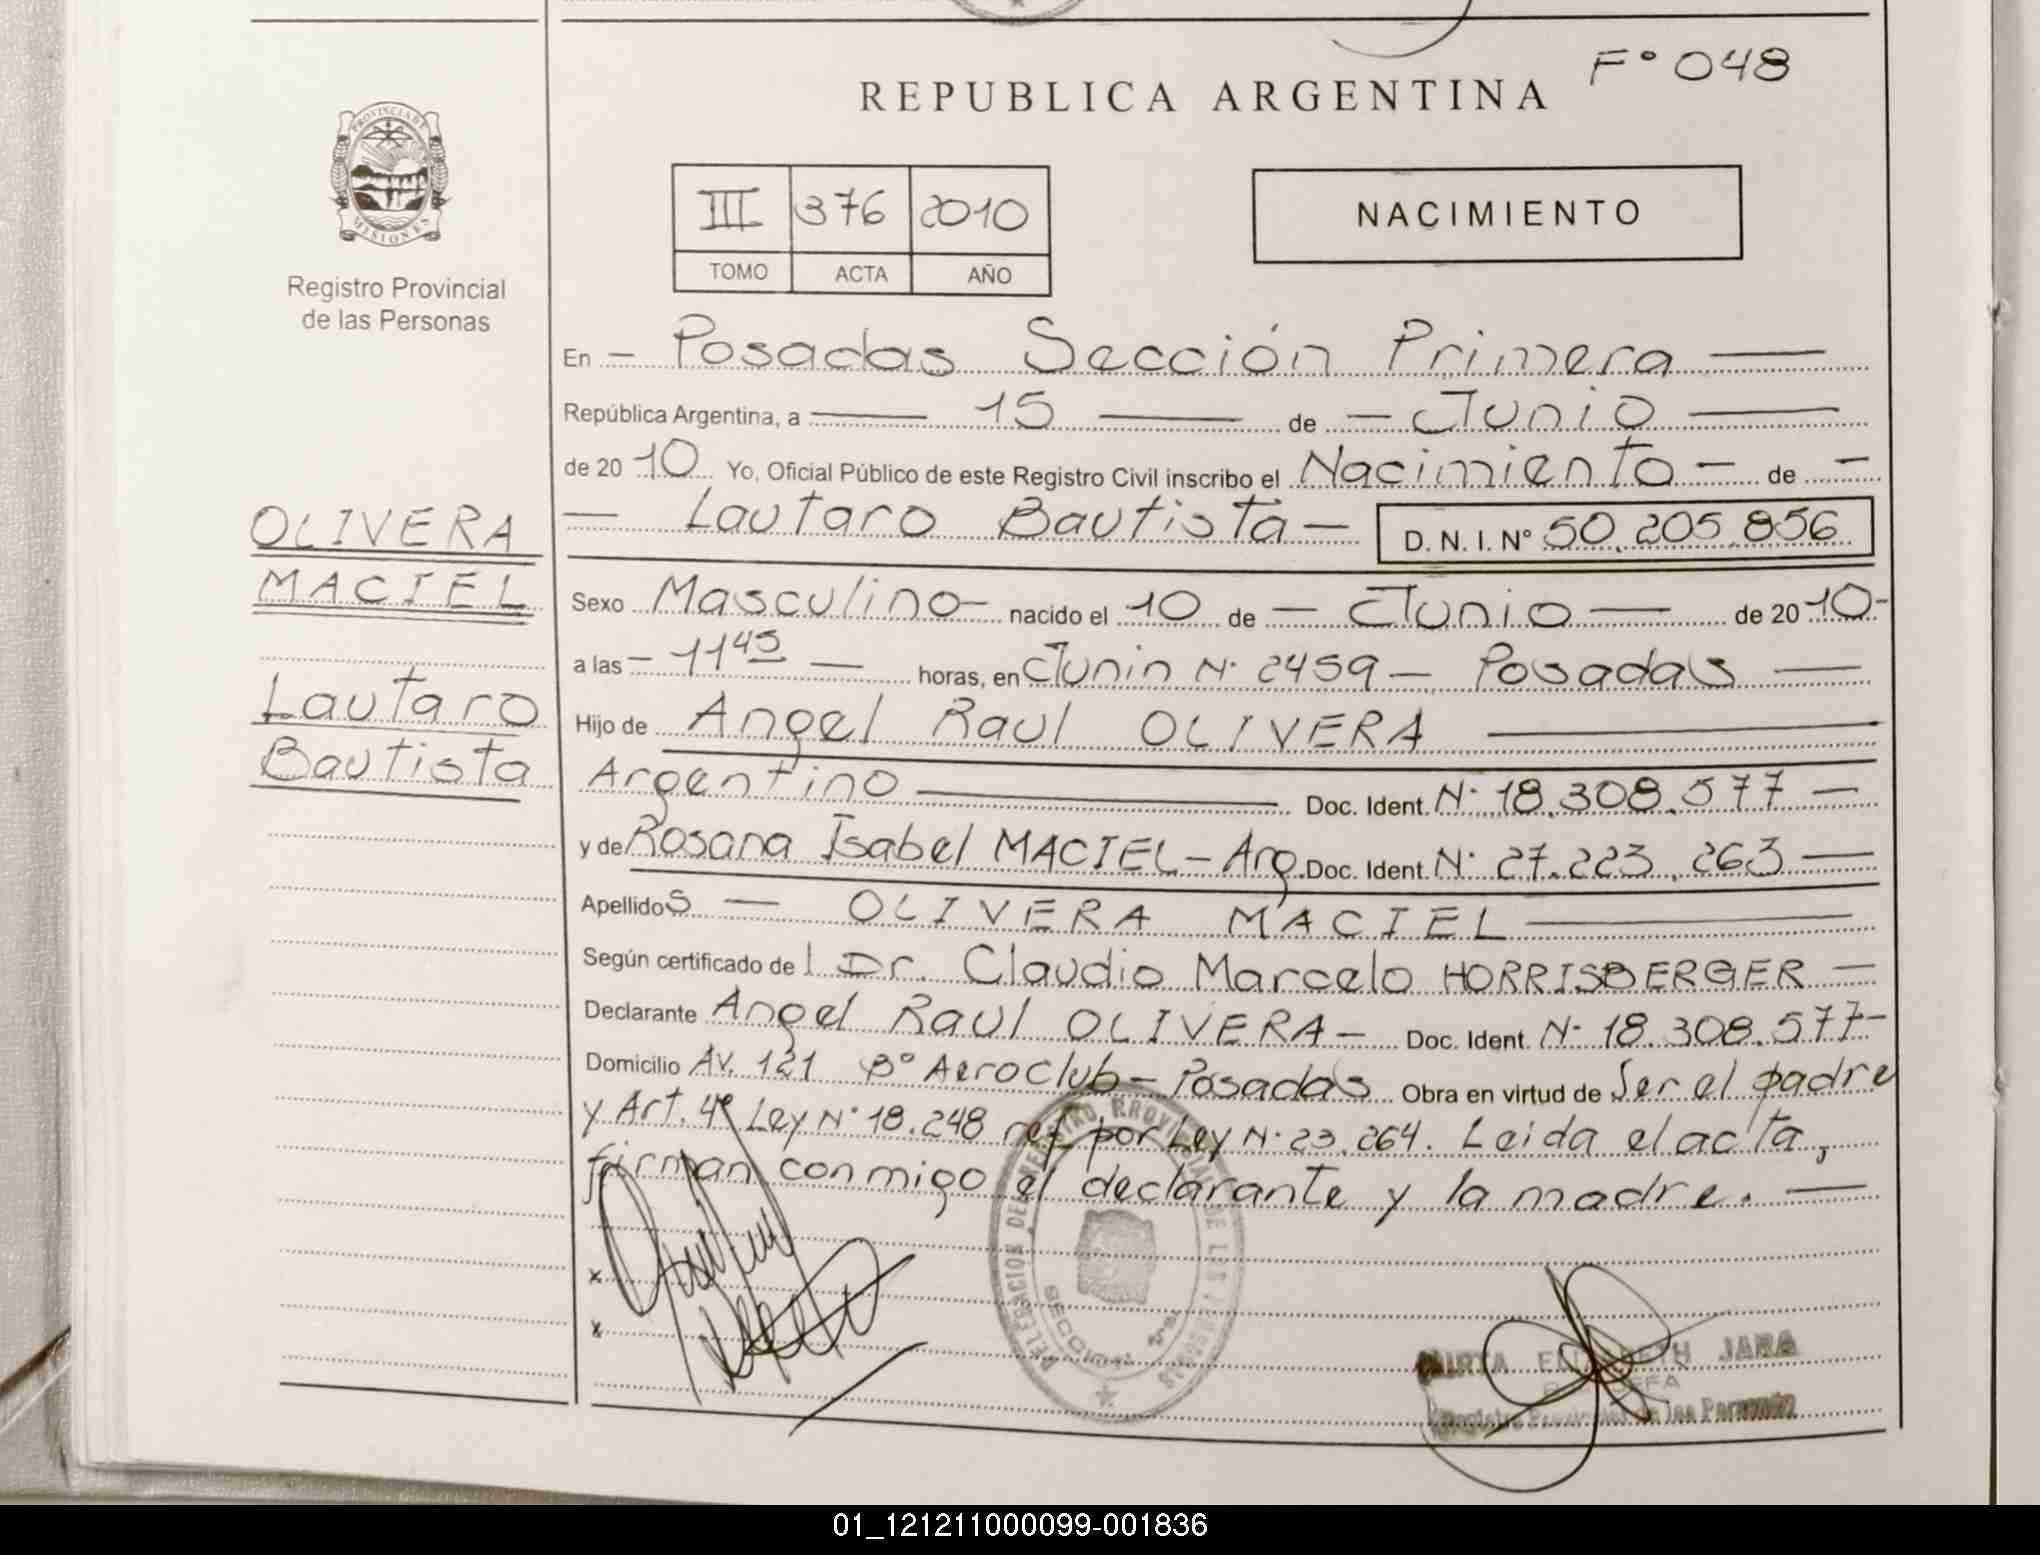 F° 048
REPUBLICA ARGENTINA
PROVINCIA DE
MISIONES
Registro Provincial
de las Personas
III 376 2010
TOMO ACTA AÑO
NACIMIENTO
OLIVERA
MACIEL
Lautaro
Bautista
En – Posadas Sección Primera —
República Argentina, a — 15 — de – Junio —
de 20 10 Yo, Oficial Público de este Registro Civil inscribo el Nacimiento – de –
— Lautaro Bautista – D. N. I. N° 50.205.856
Sexo Masculino – nacido el 10 de – Junio — de 20 10 -
a las – 11 45 — horas, en Junin N° 2459 – Posadas —
Hijo de Angel Raul OLIVERA —
Argentino — Doc. Ident. N° 18.308.577 —
y de Rosana Isabel MACIEL – Arg. Doc. Ident. N° 27.223.263 —
Apellidos — OLIVERA MACIEL —
Según certificado de l Dr. Claudio Marcelo HORRISBERGER —
Declarante Angel Raul OLIVERA – Doc. Ident. N° 18.308.577 -
Domicilio Av. 121 B° Aeroclub – Posadas Obra en virtud de Ser el padre
y Art. 4° Ley N° 18.248 ref. por Ley N° 23.264. Leida el acta,
firman conmigo el declarante y la madre. —
x
x
DELEGACION DEL REGISTRO PROVINCIAL DE LAS PERSONAS
SECCION 1ra
MIRTA ELIZABETH JARA
JEFA
Registro Provincial de las Personas
01_121211000099-001836